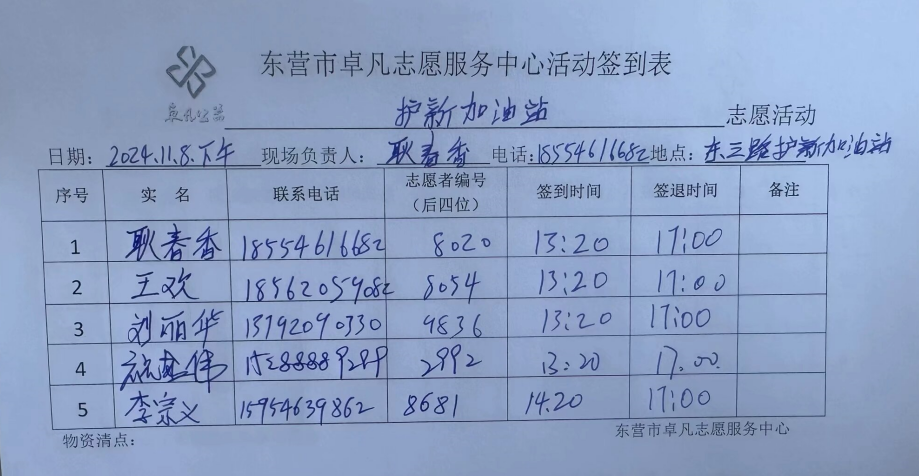 东营市卓凡志愿服务中心活动签到表
卓凡公益
护新加油站 志愿活动
日期：2024.11.8.下午 现场负责人：耿春香 电话：18554616682 地点：东三路护新加油站
序号 实 名 联系电话 志愿者编号（后四位） 签到时间 签退时间 备注
1 耿春香 18554616682 8020 13:20 17:00
2 王欢 18562059082 8054 13:20 17:00
3 刘丽华 13792090330 9836 13:20 17:00
4 2992 13:20 17.00
5 李宗义 15954639862 8681 14.20 17:00
物资清点： 东营市卓凡志愿服务中心